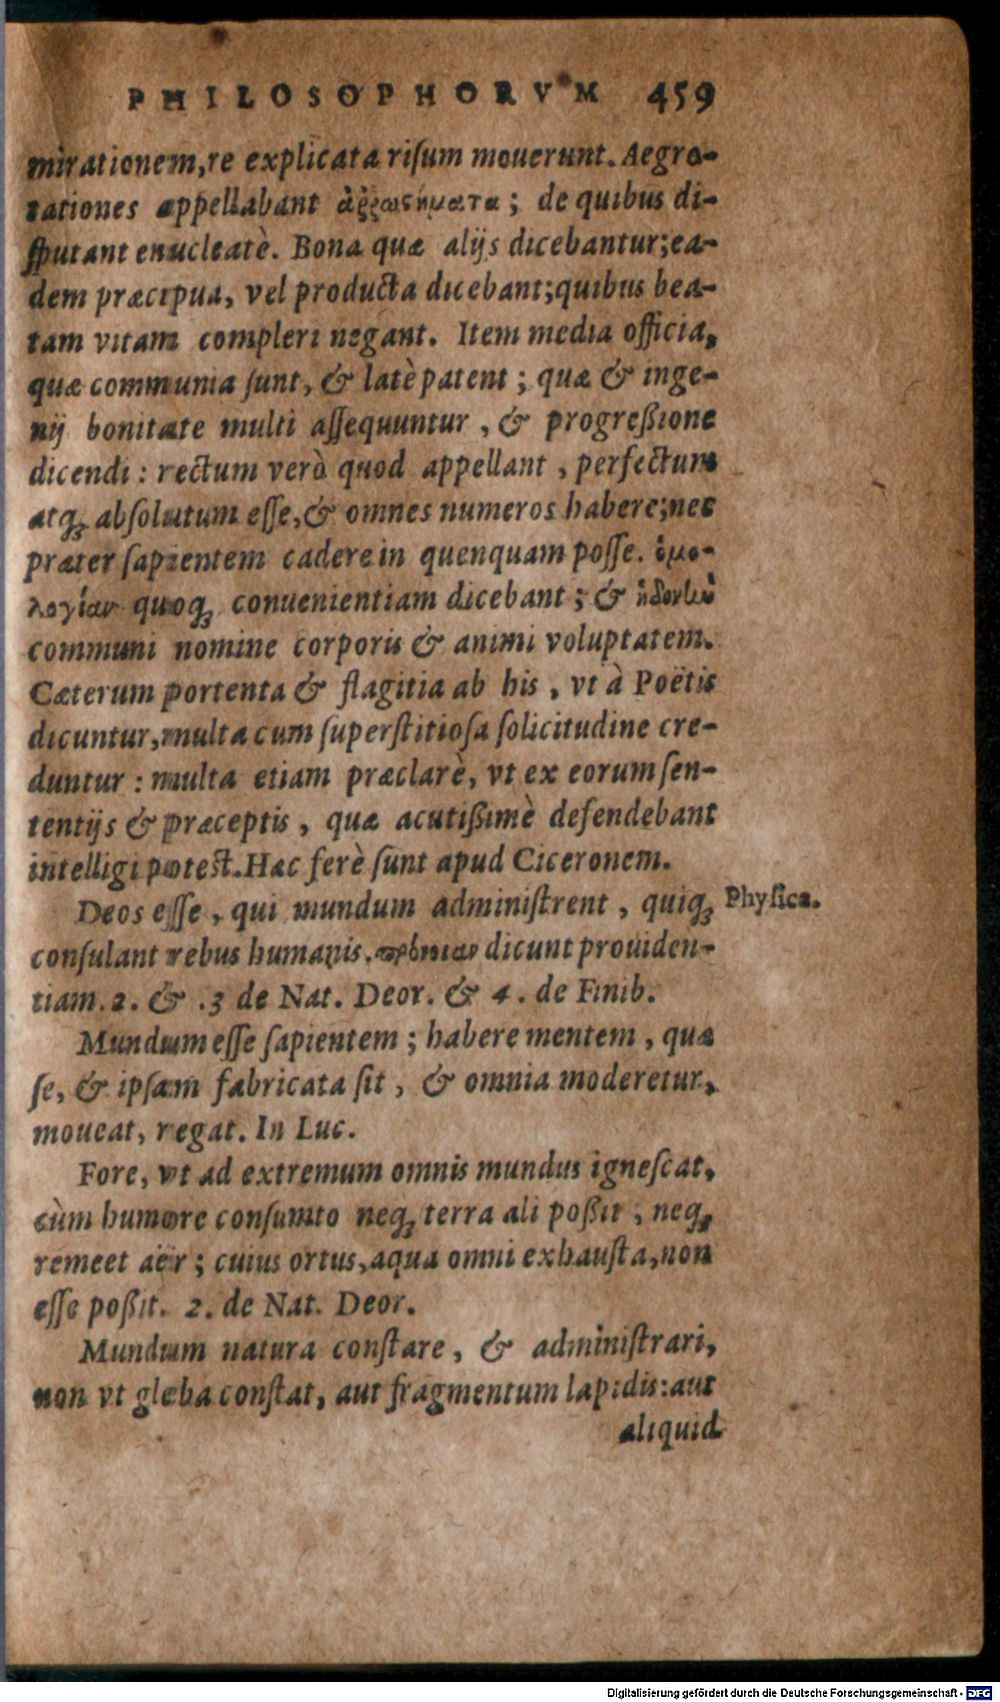 PHILOSOPHORVM 459
mirationem, re explicata riſum mouerunt. Aegro-
tationes appellabant ἀῤῥωϛήματα; de quibus di-
ſputant enucleatè. Bona quæ alijs dicebantur; ea-
dem præcipua, vel producta dicebant; quibus bea-
tam vitam compleri negant. Item media officia,
quæ communia ſunt, & latè patent; quæ & inge-
nij bonitate multi aſſequuntur, & progreßione
dicendi: rectum verò quod appellant, perfectum
atq; abſolutum eſſe, & omnes numeros habere; nec
præter ſapientem cadere in quenquam poſſe. ὁμο-
λογίαν quoq; conuenientiam dicebant; & ἡδονὴν
communi nomine corporis & animi voluptatem.
Cæterum portenta & flagitia ab his, vt à Poëtis
dicuntur, multa cum ſuperſtitioſa ſolicitudine cre-
duntur: multa etiam præclarè, vt ex eorum ſen-
tentijs & præceptis, quæ acutißimè defendebant
intelligi poteſt. Hæc ferè ſunt apud Ciceronem.
Deos eſſe, qui mundum adminiſtrent, quiq; Phyſica.
conſulant rebus humanis. πρόνοιαν dicunt prouiden-
tiam. 2. & .3 de Nat. Deor. & 4. de Finib.
Mundum eſſe ſapientem; habere mentem, quæ
ſe, & ipſam fabricata ſit, & omnia moderetur,
moueat, regat. In Luc.
Fore, vt ad extremum omnis mundus igneſcat,
cùm humore conſumto neq; terra ali poßit, neq;
remeet aër; cuius ortus, aqua omni exhauſta, non
eſſe poßit. 2. de Nat. Deor.
Mundum natura conſtare, & adminiſtrari,
non vt gleba conſtat, aut fragmentum lapidis: aut
aliquid
Digitalisierung gefördert durch die Deutsche Forschungsgemeinschaft - DFG